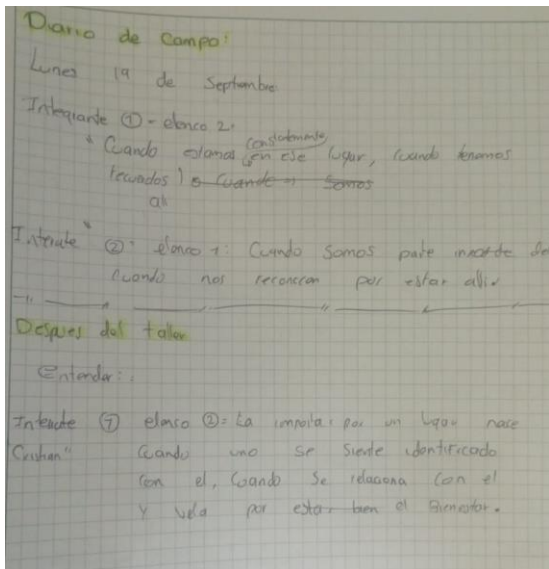 Diario de campo:
Lunes 19 de Septiembre
Integrante ① - elenco 2:
constantemente
" Cuando estamos en ese lugar, cuando tenemos
recuerdos) o cuando somos
al
② : elenco 1: Cuando somos parte
cuando nos reconocen por estar allí.
Despues del taller
Entender:
① elenco ②= La importa. por un lugar nace
Cristian" cuando uno se siente identificado
con el, cuando se relaciona con el
y vela por estar bien el Bienestar.